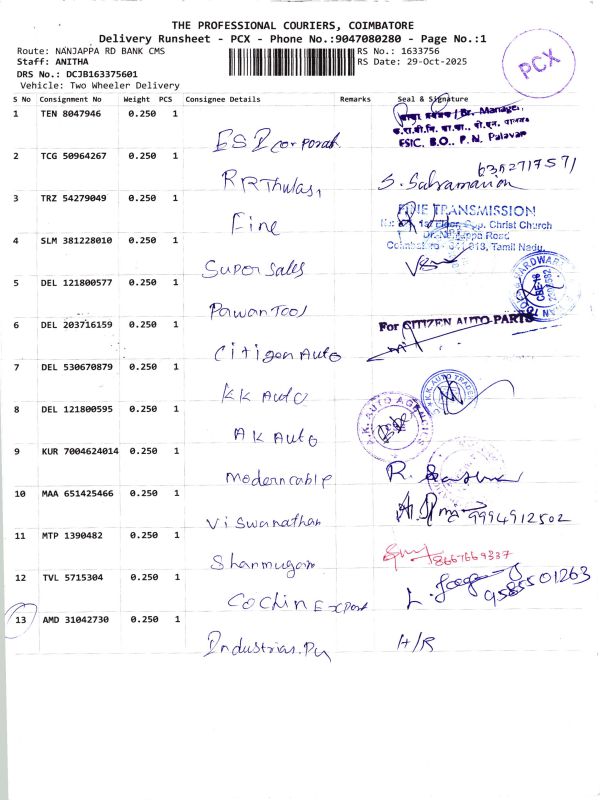 THE PROFESSIONAL COURIERS, COIMBATORE
Delivery Runsheet - PCX - Phone No.:9047080280 - Page No.:1
Route: NANJAPPA RD BANK CMS
RS No.: 1633756
Staff: ANITHA
RS Date: 29-Oct-2025
DRS No.: DCJB163375601
Vehicle: Two Wheeler Delivery
PCX
S No Consignment No Weight PCS Consignee Details Remarks Seal & Signature
1 TEN 8047946 0.250 1 ESI corporat
Br. Manager,
ESIC, B.O., P.N. Palayam
2 TCG 50964267 0.250 1 RR Thulasi
6352717571
S. Subramanian
3 TRZ 54279049 0.250 1 Fine
FINE TRANSMISSION
1st Floor, Opp. Christ Church
Dr. Nanjappa Road
Coimbatore - 641 018, Tamil Nadu.
4 SLM 381228010 0.250 1 Super Sales
5 DEL 121800577 0.250 1 Pawan Tool
HARDWARE
6 DEL 203716159 0.250 1 Citizen Auto
For CITIZEN AUTO PARTS
7 DEL 530670879 0.250 1 KK Auto
K.K. AUTO TRADERS
8 DEL 121800595 0.250 1 AK Auto
A.K. AUTO AGENCIES
9 KUR 7004624014 0.250 1 Modern cable
10 MAA 651425466 0.250 1 Viswanathan
9994912502
11 MTP 1390482 0.250 1 Shanmugam
8667669337
12 TVL 5715304 0.250 1 Cochin Export
9585501263
13 AMD 31042730 0.250 1 Industrias. Pu
H/R